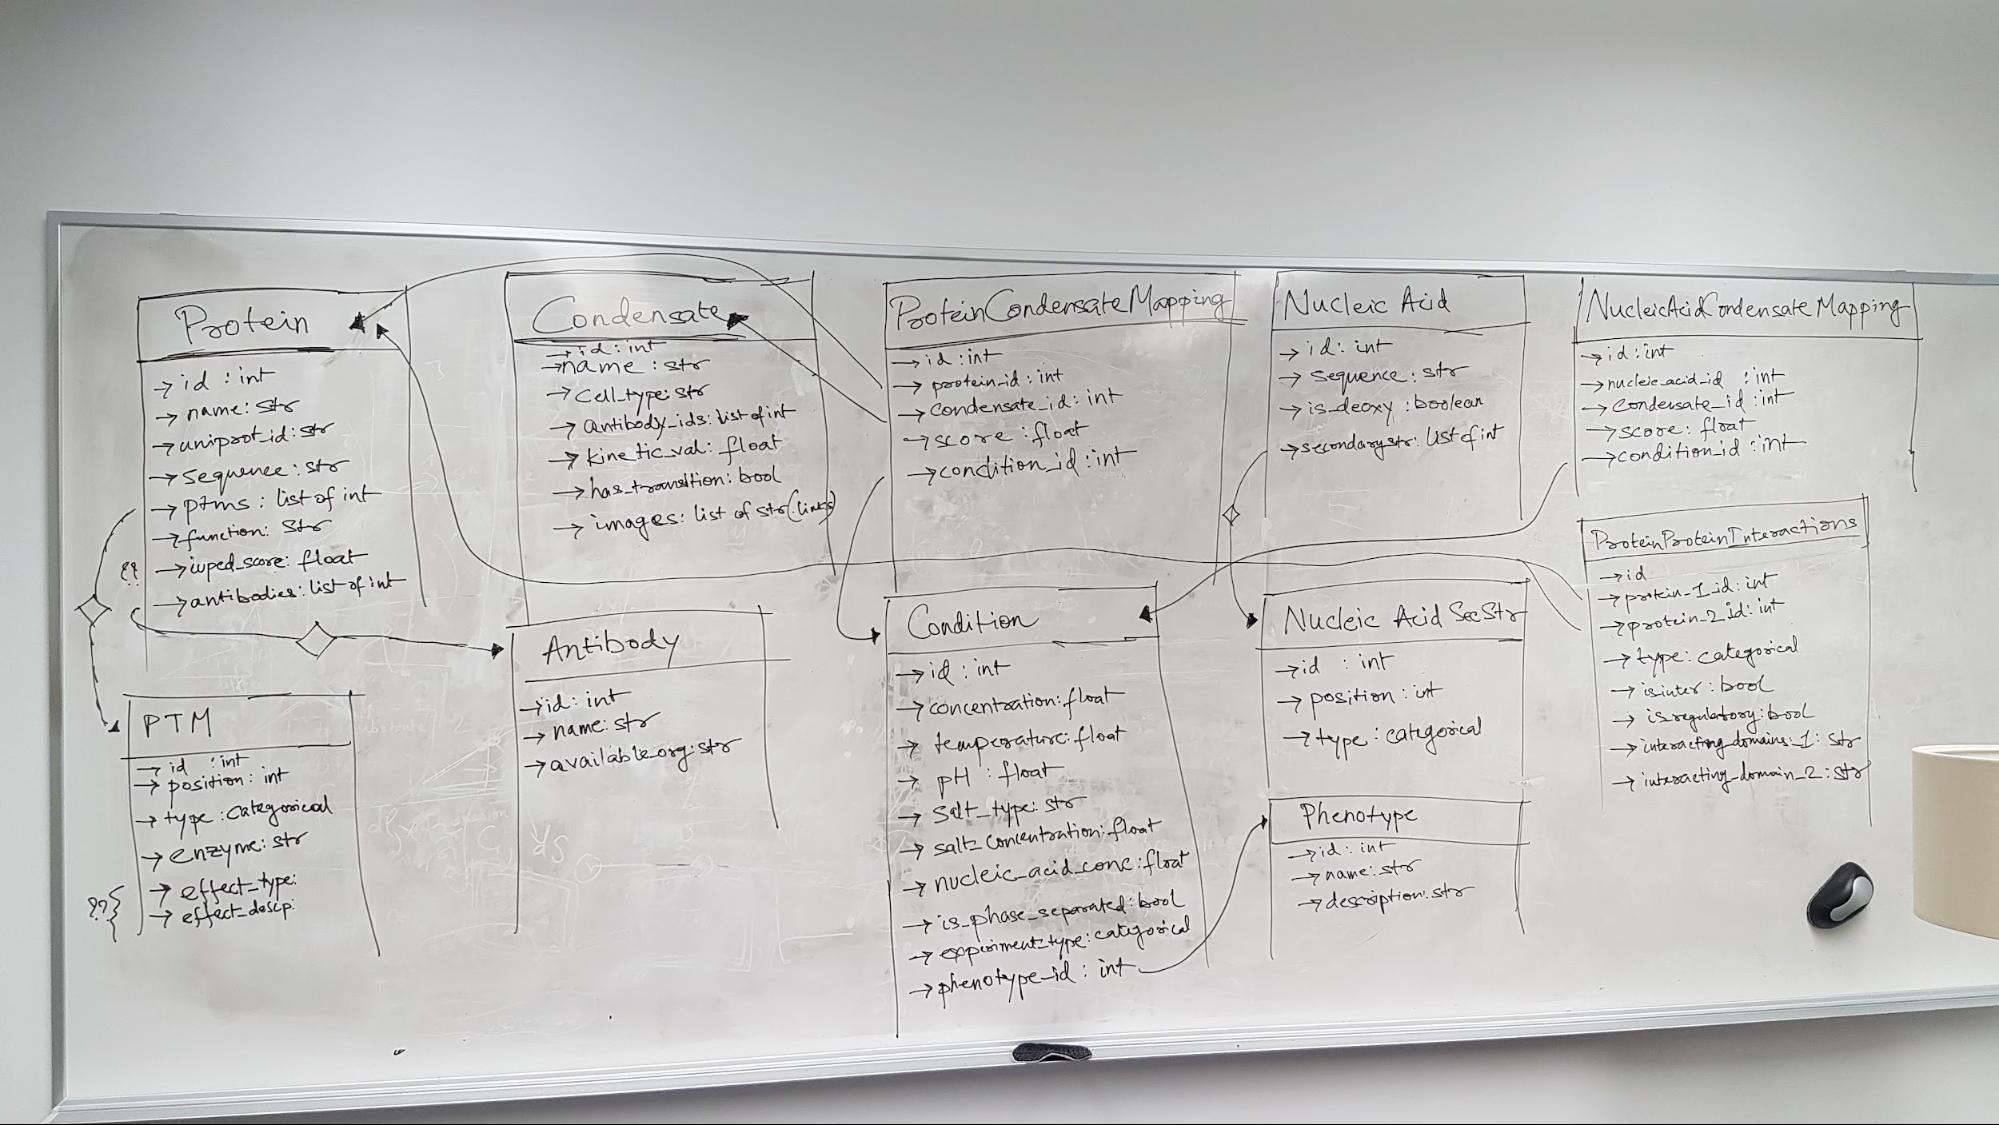 Protein
→ id : int
→ name: str
→ uniprot_id: str
→ sequence: str
→ ptms : list of int
→ function: str
?? → iuped_score: float
→ antibodies: list of int
PTM
→ id : int
→ position: int
→ type: categorical
→ enzyme: str
??{ → effect_type:
→ effect_descp:
Condensate
→ id: int
→ name : str
→ cell_type: str
→ antibody_ids: list of int
→ kinetic_val: float
→ has_transition: bool
→ images: list of str (links)
Antibody
→ id: int
→ name: str
→ available_org: str
ProteinCondensateMapping
→ id : int
→ protein_id: int
→ condensate_id: int
→ score: float
→ condition_id: int
Condition
→ id : int
→ concentration: float
→ temperature: float
→ pH : float
→ salt_type: str
→ salt_concentration: float
→ nucleic_acid_conc: float
→ is_phase_separated: bool
→ experiment_type: categorical
→ phenotype_id: int
Nucleic Acid
→ id: int
→ sequence: str
→ is_deoxy : boolean
→ secondarystr: list of int
Nucleic Acid SecStr
→ id : int
→ position : int
→ type: categorical
Phenotype
→ id: int
→ name: str
→ description: str
NucleicAcidCondensateMapping
→ id: int
→ nucleic_acid_id : int
→ condensate_id: int
→ score: float
→ condition_id: int
ProteinProteinInteractions
→ id
→ protein_1_id: int
→ protein_2_id: int
→ type: categorical
→ isinter: bool
→ isregulatory: bool
→ interacting_domains_1: str
→ interacting_domain_2: str